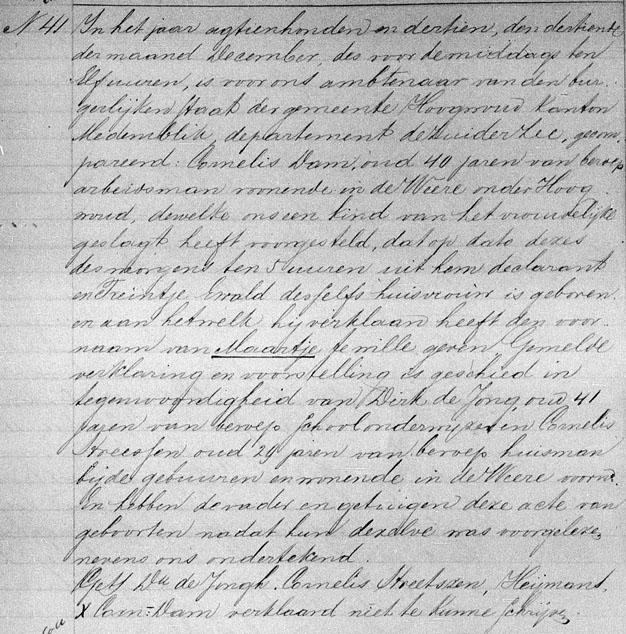 N 41 In het jaar agtienhonderd en dertien, den dertiende
der maand December, des voordemiddags ten
Elf uuren, is voor ons ambtenaar van den bur
gerlijken staat der gemeente Hoogwoud Kanton
Medemblik, departement de Zuider Zee, gecom
pareerd: Cornelis Dam, oud 40 jaren van beroep
arbeidsman woonende in de Weere onder Hoog
woud, dewelke ons een kind van het vrouwelijke
geslagt heeft voorgesteld, dat op dato dezes
des morgens ten 5 uuren uit hem declarant
en Treintje Ewald desselfs huisvrouw is geboren.
en aan hetwelk hij verklaard heeft den voor
naam van Maartje te wille geven Gemelde
verklaring en voorstelling is geschied in
tegenwoordigheid van Dirk de Jong, oud 41
jaren van beroep schoolonderwyzer en Cornelis
oud 29 jaren van beroep huisman
bijde gebuuren en wonende in de Weere voorn.
En hebben de vader en getuigen deze acte van
geboorten nadat hun dezelve was voorgeleze,
nevens ons ondertekend.
Get. Dk de Jongh. Cornelis Heijmans,
X Corn = Dam verklaard niet te kunne schrijve,